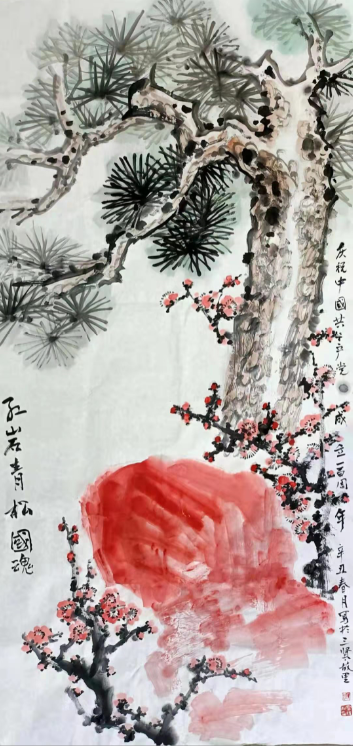 庆祝中國共产党成立一百周年 辛丑春月写於三贤故里
红岩青松國魂